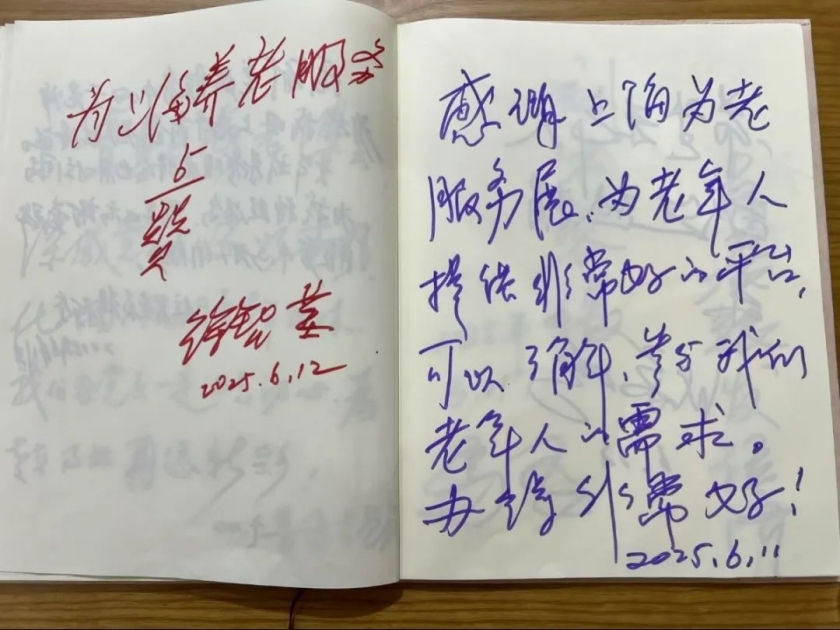 为上海养老服务
点赞
徐智英
2025.6.12
感谢上海为老
服务展、为老年人
提供非常好的平台,
可以了解、参与我们
老年人的需求。
办得非常好!
2025.6.11